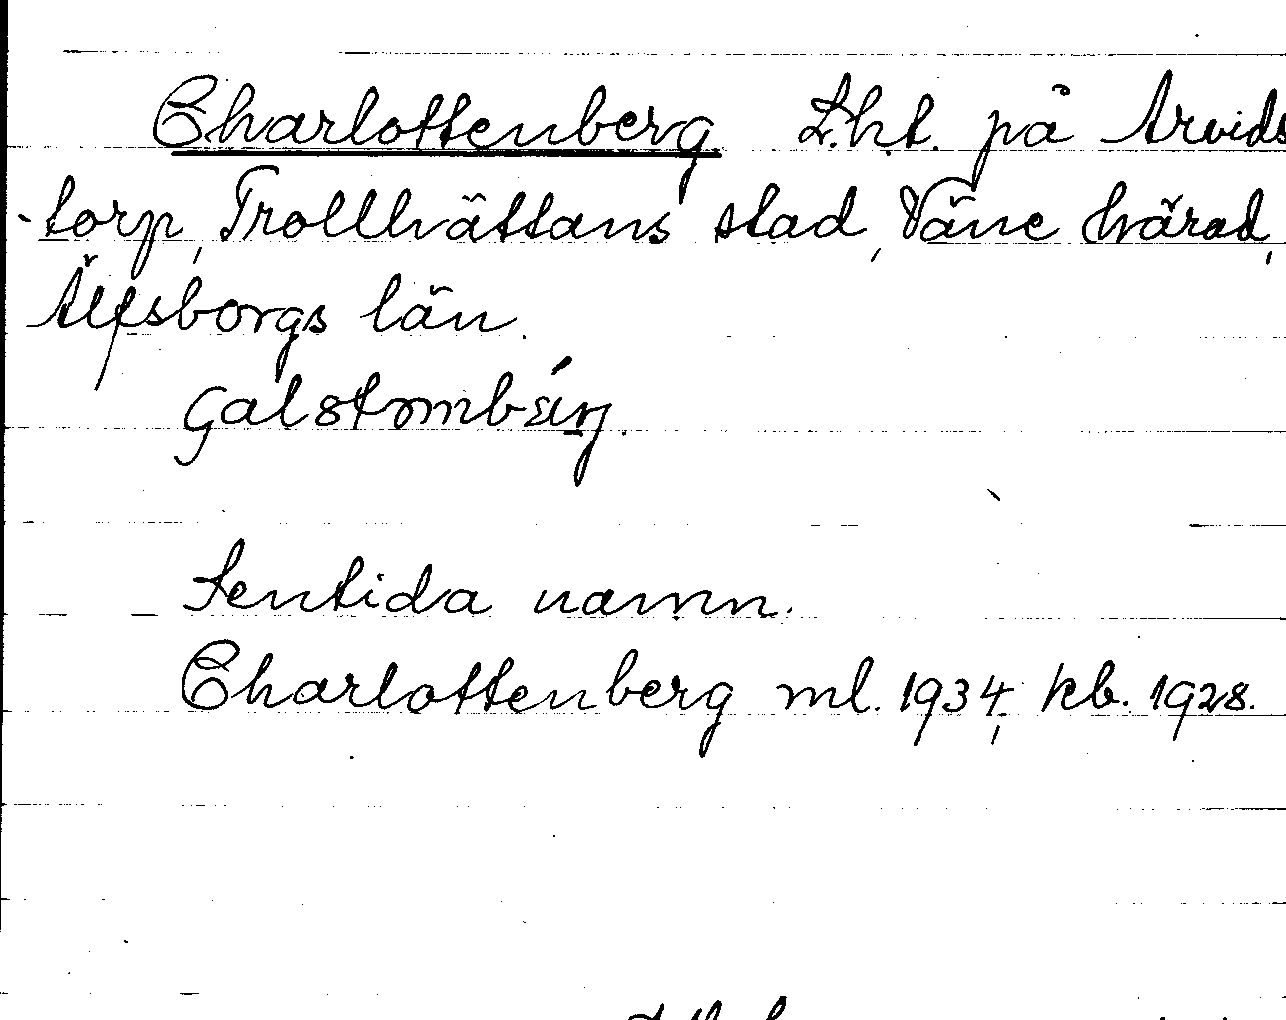 Charlottenberg L.h.t. på Arvids
-torp, Trollhättans stad, Väne härad,
Älfsborgs län.
Sentida namn.
Charlottenberg ml. 1934, kb. 1928.